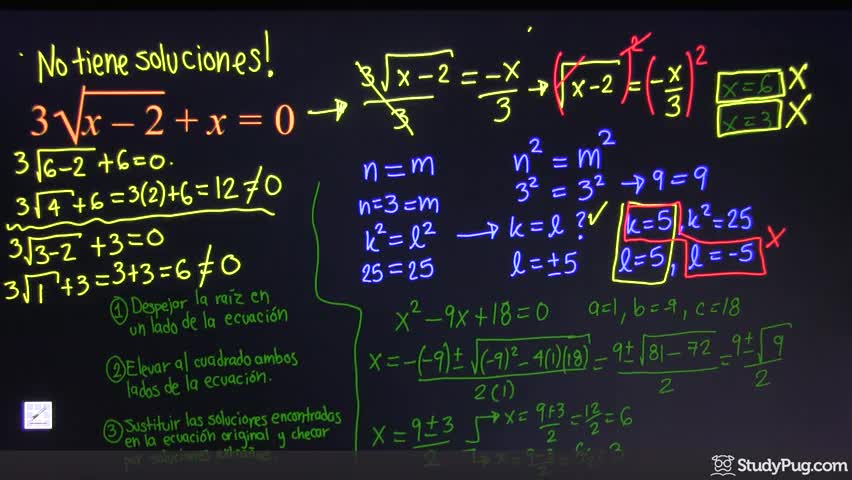 No tiene soluciones!
3√(x – 2) + x = 0 → 3√(x-2)/3 = -x/3 → (√(x-2))² = (-x/3)²
x=6 X
x=3 X
3√(6-2) +6=0.
3√4 +6=3(2)+6=12≠0
3√(3-2) +3=0
3√1 +3=3+3=6≠0
n=m
n=3=m
k²=l²
25=25
n²=m²
3²=3² → 9=9
→ k=l? ✓
l=±5
k=5, k²=25
l=5, l=-5 X
① Despejar la raíz en
un lado de la ecuación
② Elevar al cuadrado ambos
lados de la ecuación.
③ Sustituir las soluciones encontradas
en la ecuación original y checar
por soluciones
x²-9x+18=0 a=1, b=-9, c=18
x=-(-9)±√((-9)²-4(1)(18))/2(1) = 9±√(81-72)/2 = 9±√9/2
x=9±3/2 → x=9+3/2=12/2=6
→ x=9-3/2=6/2=3
StudyPug.com